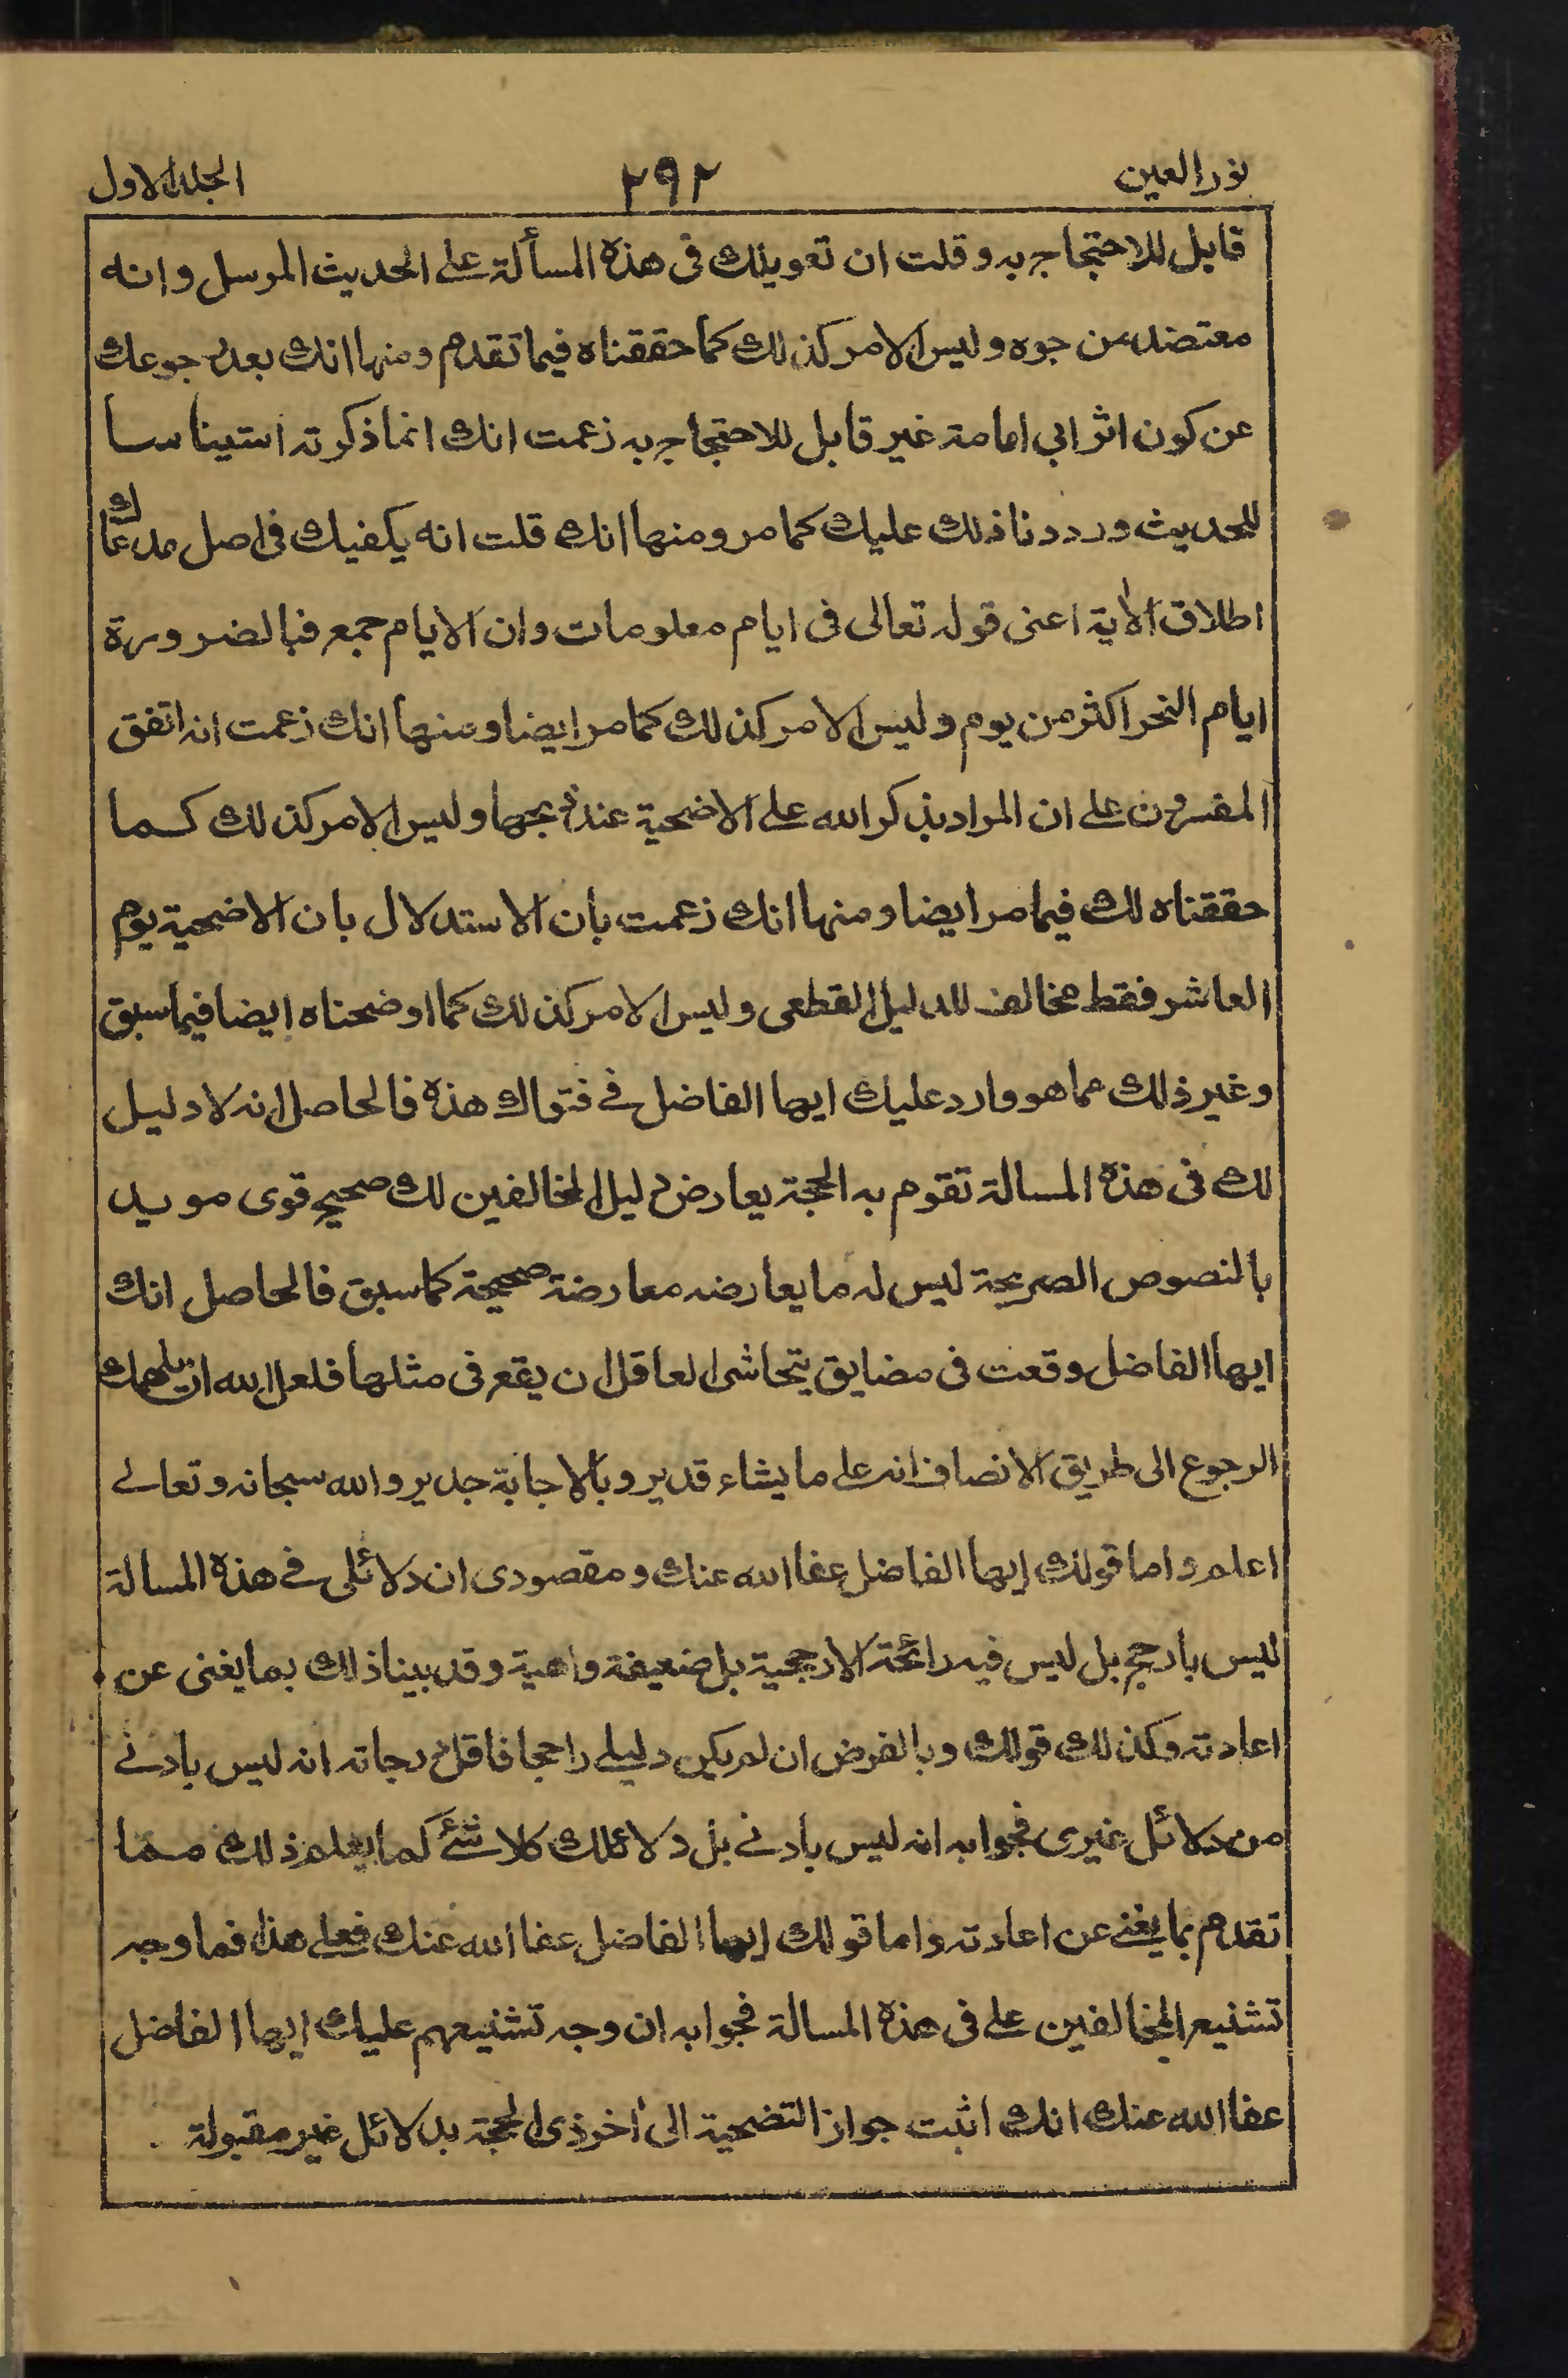 نور العين ٢٩٢ الجلد الاول
قابل للاحتجاج به وقلت ان تعويلك فى هذه المسألة على الحديث المرسل وانه
معتضد من جوه وليس الامر كذلك كما حققناه فيما تقدم ومنها انك بعد رجوعك
عن كون اثر ابي امامة غير قابل للاحتجاج به زعمت انك انما ذكرته استيناسا
للحديث ورددنا ذلك عليك كما مر ومنها انك قلت انه يكفيك فى اصل مدعاك
اطلاق الآية اعنى قوله تعالى فى ايام معلومات وان الايام جمع فبالضرورة
ايام النحر اكثر من يوم وليس الامر كذلك كما مر ايضا ومنها انك زعمت انه اتفق
المفسرون على ان المراد بذكر الله على الاضحية عند ذبحها وليس الامر كذلك كما
حققناه لك فيما مر ايضا ومنها انك زعمت بان الاستدلال بان الاضحية يوم
العاشر فقط مخالف للدليل القطعى وليس الامر كذلك كما اوضحناه ايضا فيما سبق
وغير ذلك مما هو وارد عليك ايها الفاضل فے فتواك هذه فالحاصل انه لا دليل
لك فى هذه المسالة تقوم به الحجة يعارض دليل المخالفين لك صحيح قوى مويد
بالنصوص الصريحة ليس له ما يعارضه معارضة صحيحة كما سبق فالحاصل انك
ايها الفاضل وقعت فى مضايق يتحاشى العاقل ان يقع فى مثلها فلعل الله ان يلهمك
الرجوع الى طريق الانصاف انه على ما يشاء قدير وبالاجابة جدير والله سبحانه وتعالے
اعلم واما قولك ايها الفاضل عفا الله عنك ومقصودى ان دلائلى فے هذه المسالة
ليس بارجح بل ليس فيه رائحة الارجحية بل ضعيفة واهية وقد بينا ذلك بما يغنى عن
اعادته وكذلك قولك وبالفرض ان لم يكن دليلے راجحا فاقل درجاته انه ليس بادنے
من دلائل غيرى فجوابه انه ليس بادنے بل دلائلك كلا شئے كما يعلم ذلك مما
تقدم بما يغنے عن اعادته واما قولك ايها الفاضل عفا الله عنك فعلے هذا فما وجه
تشنيع المخالفين على فى هذه المسالة فجوابه ان وجه تشنيعهم عليك ايها الفاضل
عفا الله عنك انك اثبت جواز التضحية الى أخر ذى الحجة بدلائل غير مقبولة